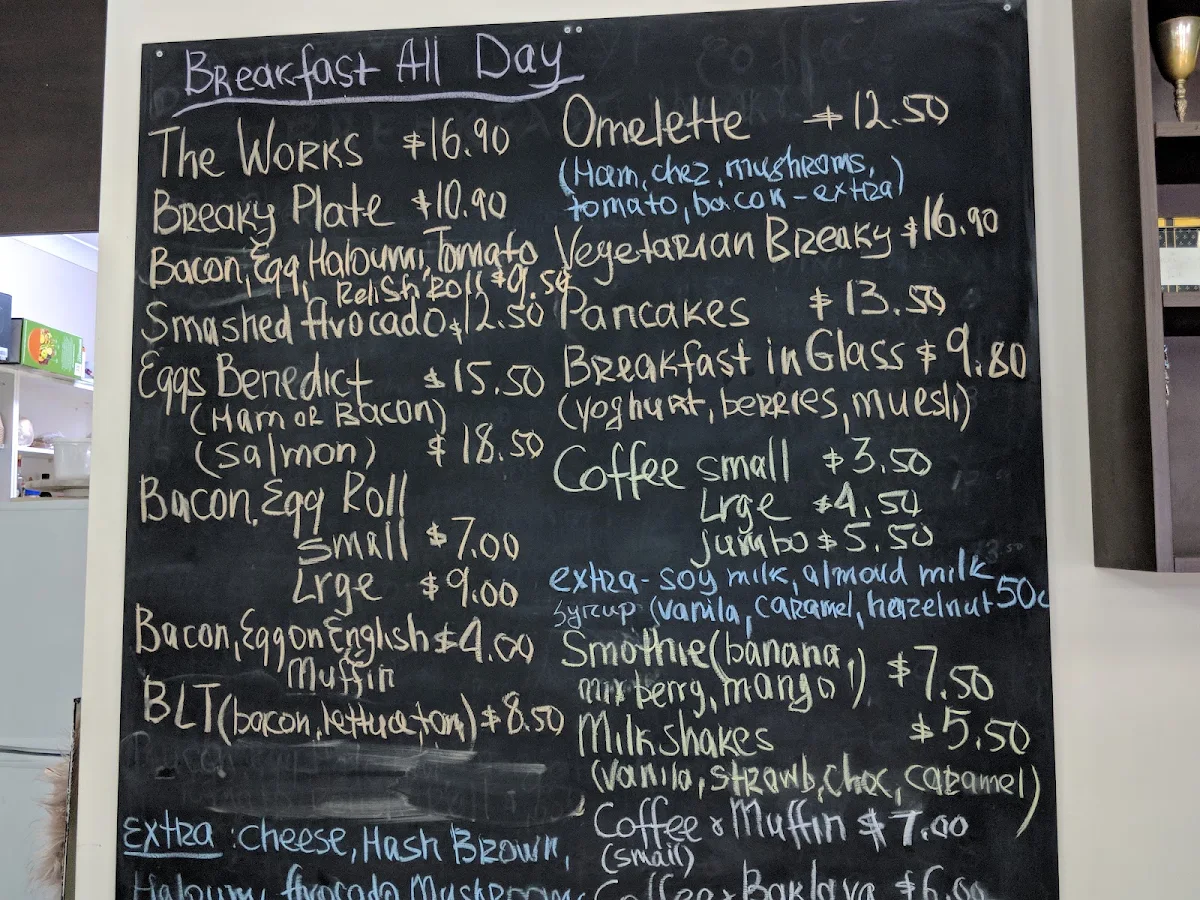 Breakfast All Day
The Works $16.90
Breaky Plate $10.90
Bacon, Egg, Haloumi, Tomato
Relish Roll $9.50
Smashed Avocado $12.50
Eggs Benedict $15.50
(Ham or Bacon)
(Salmon) $18.50
Bacon, Egg Roll
small $7.00
Lrge $9.00
Bacon, Egg on English $4.00
Muffin
BLT (bacon, lettuce, tom) $8.50
Extra: cheese, Hash Brown,
Haloumi, Avocado, Mushroom
Omelette $12.50
(Ham, chez, mushroms,
tomato, bacon - extra)
Vegetarian Breaky $16.90
Pancakes $13.50
Breakfast in Glass $9.80
(yoghurt, berries, muesli)
Coffee small $3.50
Lrge $4.50
jumbo $5.50
extra - soy milk, almond milk
syrup (vanila, caramel, hazelnut 50c
Smothie (banana,
mix berry, mango) $7.50
Milkshakes $5.50
(vanila, strawb, choc, caramel)
Coffee & Muffin $7.00
(small)
Coffee & Baklava $6.00